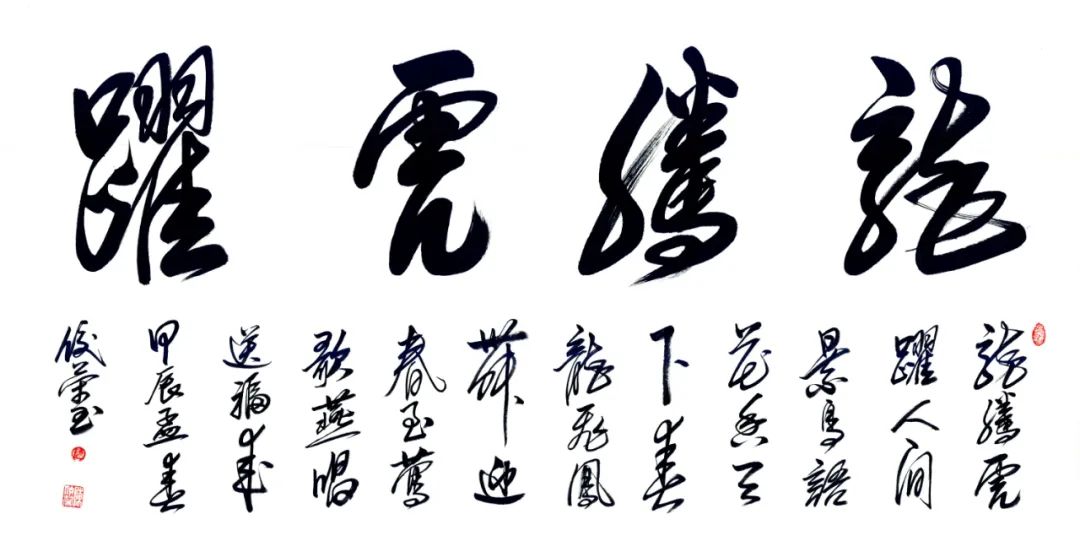 龍騰虎躍
龍騰虎
躍人間
景鳥語
花香天
下春
龍飛鳳
舞迎
春至鶯
歌燕唱
送福來
甲辰孟春